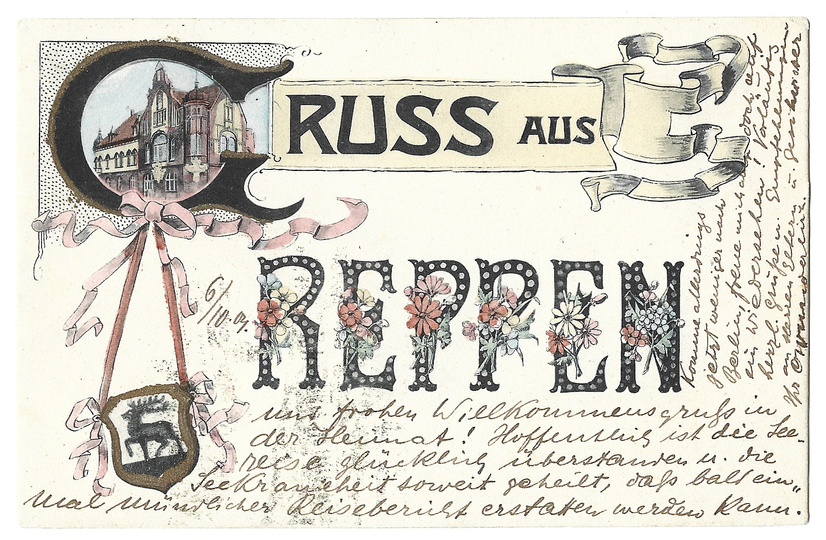 GRUSS AUS
REPPEN
6/10. 09.
und frohen Willkommensgruß in
der Heimat! Hoffentlich ist die See-
reise glücklich überstanden u. die
Seekrankheit soweit geheilt, daß bald ein„
mal mündlicher Reisebericht erstatten werden kann.
Komme allerdings
jetzt weniger nach
Berlin, freue mich aber doch auf
ein Wiedersehen! Vorläufig
herzl. Grüße u. Empfehlungen
an seinen Eltern u. Geschwister